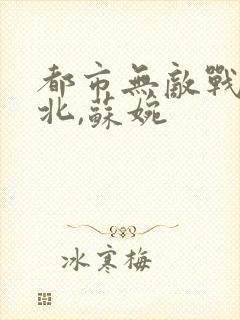 都市無敵戰
北,蘇婉
冰寒梅